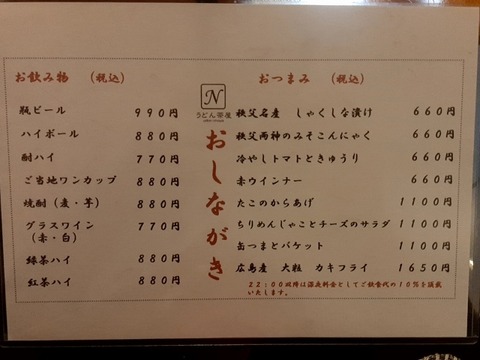 お飲み物　(税込)
瓶ビール　990円
ハイボール　880円
酎ハイ　770円
ご当地ワンカップ　880円
焼酎(麦・芋)　880円
グラスワイン　770円
(赤・白)
緑茶ハイ　880円
紅茶ハイ　880円
N
うどん茶屋
おしながき
おつまみ　(税込)
秩父名産　しゃくしな漬け　660円
秩父両神のみそこんにゃく　660円
冷やしトマトときゅうり　660円
赤ウインナー　660円
たこのからあげ　1100円
ちりめんじゃことチーズのサラダ　1100円
缶つまとバケット　1100円
広島産　大粒　カキフライ　1650円
22:00以降は深夜料金としてご飲食代の10%を頂戴
いたします。